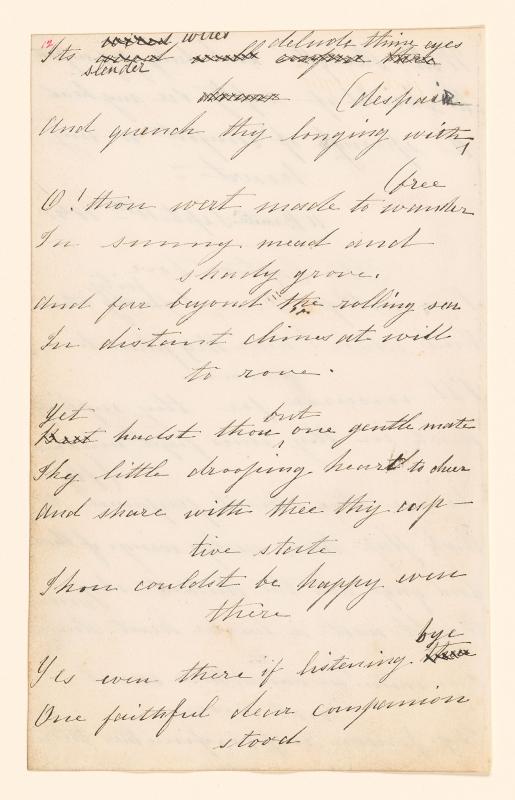 12
wires delude thine eyes
Its
slender
(despair
And quench thy longing with
(free
O! thou wert made to wander
In sunny mead and
shady grove.
And far beyond the rolling sea
In distant climes at will
to rove.
Yet but
hadst thou one gentle mate
Thy little drooping heart to cheer
And share with thee thy cap-
tive state
Thou couldst be happy even
there
bye
Yes even there if listening
One faithful dear companion
stood